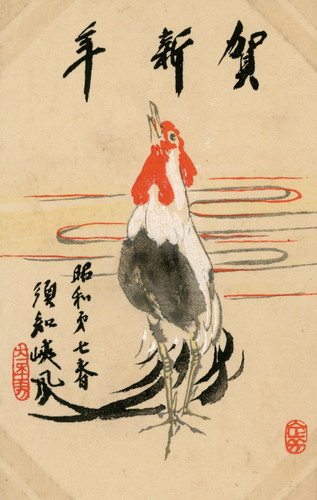 賀新年
昭和第七春
須知峽風